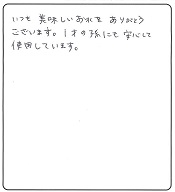 いつも 美味しいお水を ありがとう
ございます。1才の孫にも安心して
使用しています。